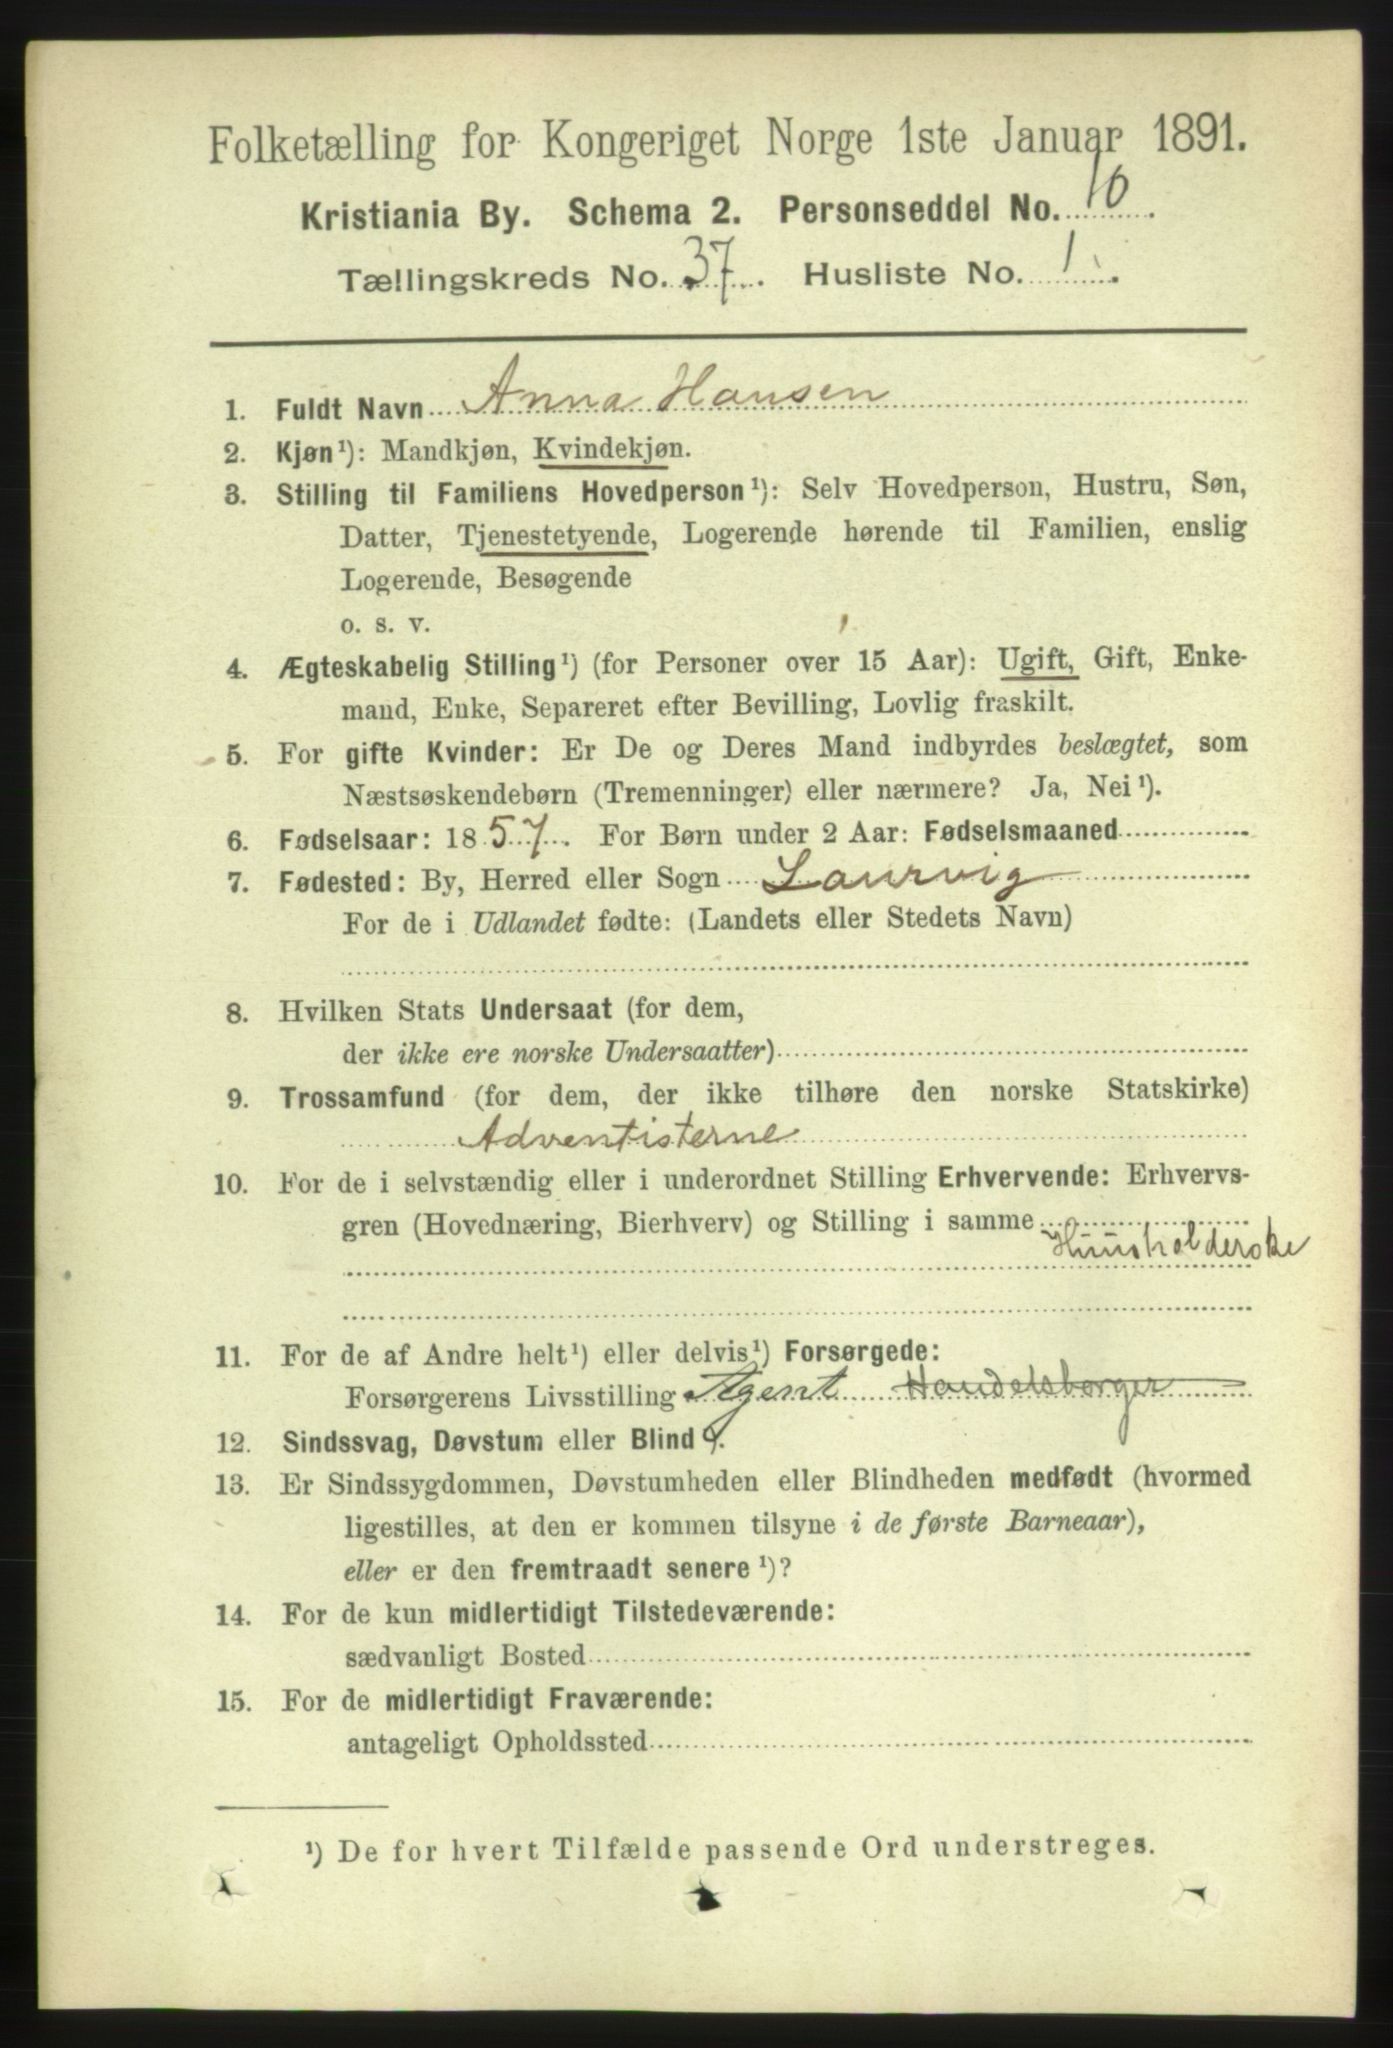 Folketælling for Kongeriget Norge 1ste Januar 1891.
Kristiania By. Schema 2. Personseddel No. 10.
Tællingskreds No. 37. Husliste No. 1.
1. Fuldt Navn Anna Hansen
2. Kjøn¹): Mandkjøn, Kvindekjøn.
3. Stilling til Familiens Hovedperson¹): Selv Hovedperson, Hustru, Søn,
Datter, Tjenestetyende, Logerende hørende til Familien, enslig
Logerende, Besøgende
o. s. v.
4. Ægteskabelig Stilling¹) (for Personer over 15 Aar): Ugift, Gift, Enke-
mand, Enke, Separeret efter Bevilling, Lovlig fraskilt.
5. For gifte Kvinder: Er De og Deres Mand indbyrdes beslægtet, som
Næstsøskendebørn (Tremenninger) eller nærmere? Ja, Nei¹).
6. Fødselsaar: 1857. For Børn under 2 Aar: Fødselsmaaned
7. Fødested: By, Herred eller Sogn Laurvig
For de i Udlandet fødte: (Landets eller Stedets Navn)
8. Hvilken Stats Undersaat (for dem,
der ikke ere norske Undersaatter)
9. Trossamfund (for dem, der ikke tilhøre den norske Statskirke)
Adventisterne
10. For de i selvstændig eller i underordnet Stilling Erhvervende: Erhvervs-
gren (Hovednæring, Bierhverv) og Stilling i samme
Huusholderske
11. For de af Andre helt¹) eller delvis¹) Forsørgede:
Forsørgerens Livsstilling Agent Handelsborger
12. Sindssvag, Døvstum eller Blind.
13. Er Sindssygdommen, Døvstumheden eller Blindheden medfødt (hvormed
ligestilles, at den er kommen tilsyne i de første Barneaar),
eller er den fremtraadt senere¹)?
14. For de kun midlertidigt Tilstedeværende:
sædvanligt Bosted
15. For de midlertidigt Fraværende:
antageligt Opholdssted
¹) De for hvert Tilfælde passende Ord understreges.